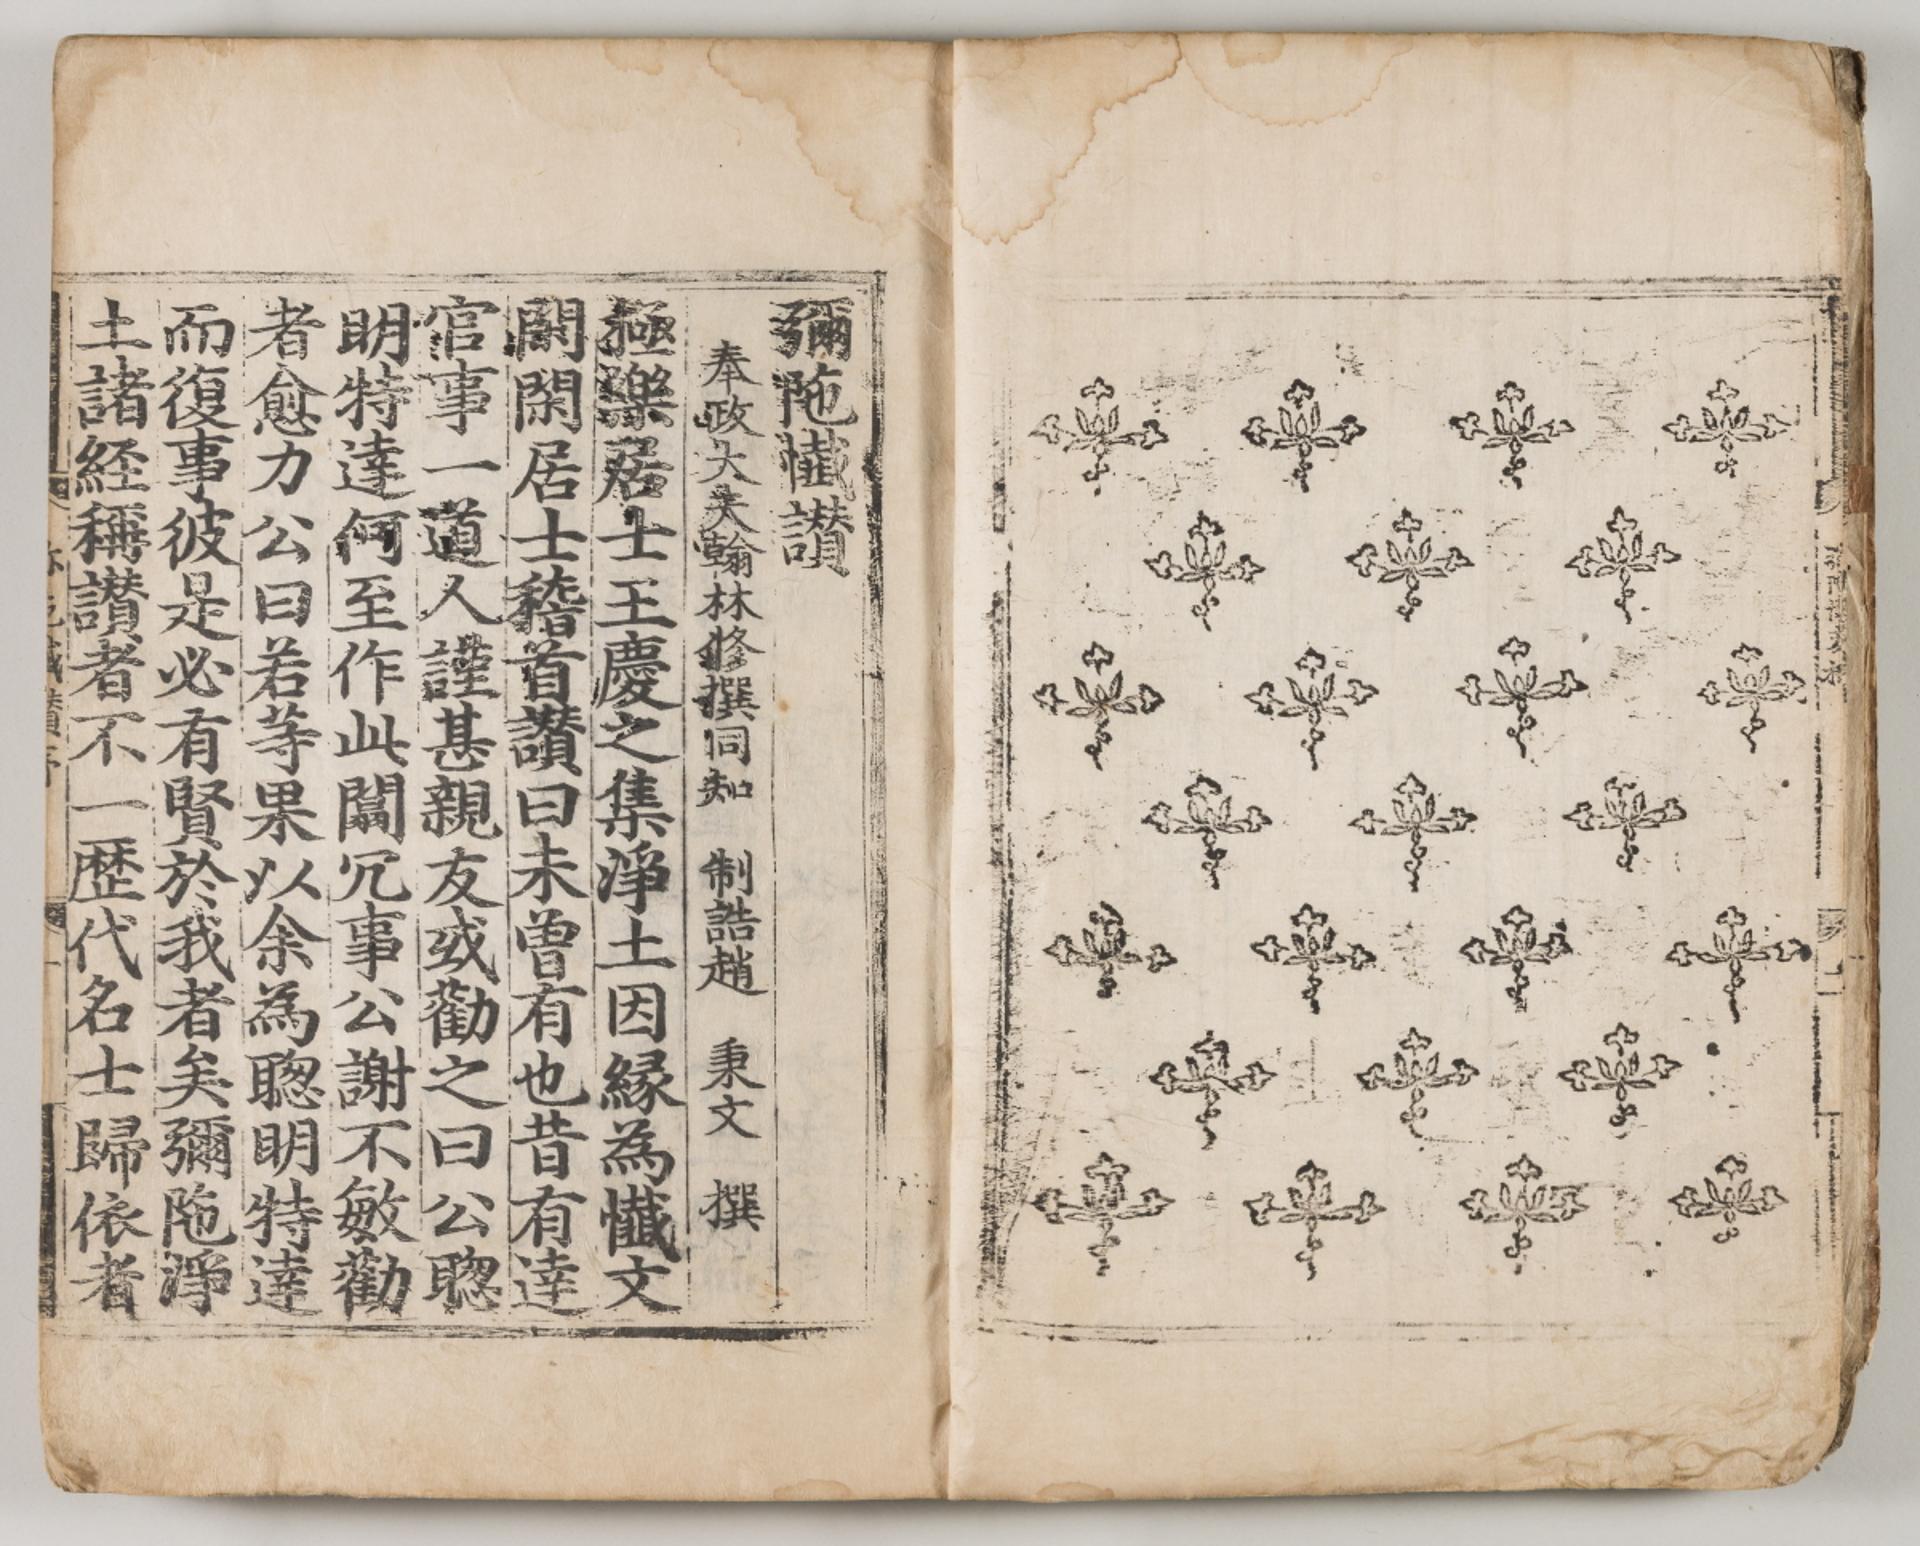 彌陁懺讃
奉政大夫翰林修撰同知 制誥趙 秉文 撰
極樂居士王慶之集淨土因緣為懺文
閑閑居士稽首讃曰未曾有也昔有達
官事一道人謹甚親友或勸之曰公聦
明特達何至作此闒冗事公謝不敏勸
者愈力公曰若等果以余為聦明特達
而復事彼是必有賢於我者矣彌陁淨
土諸経稱讃者不一歴代名士歸依者